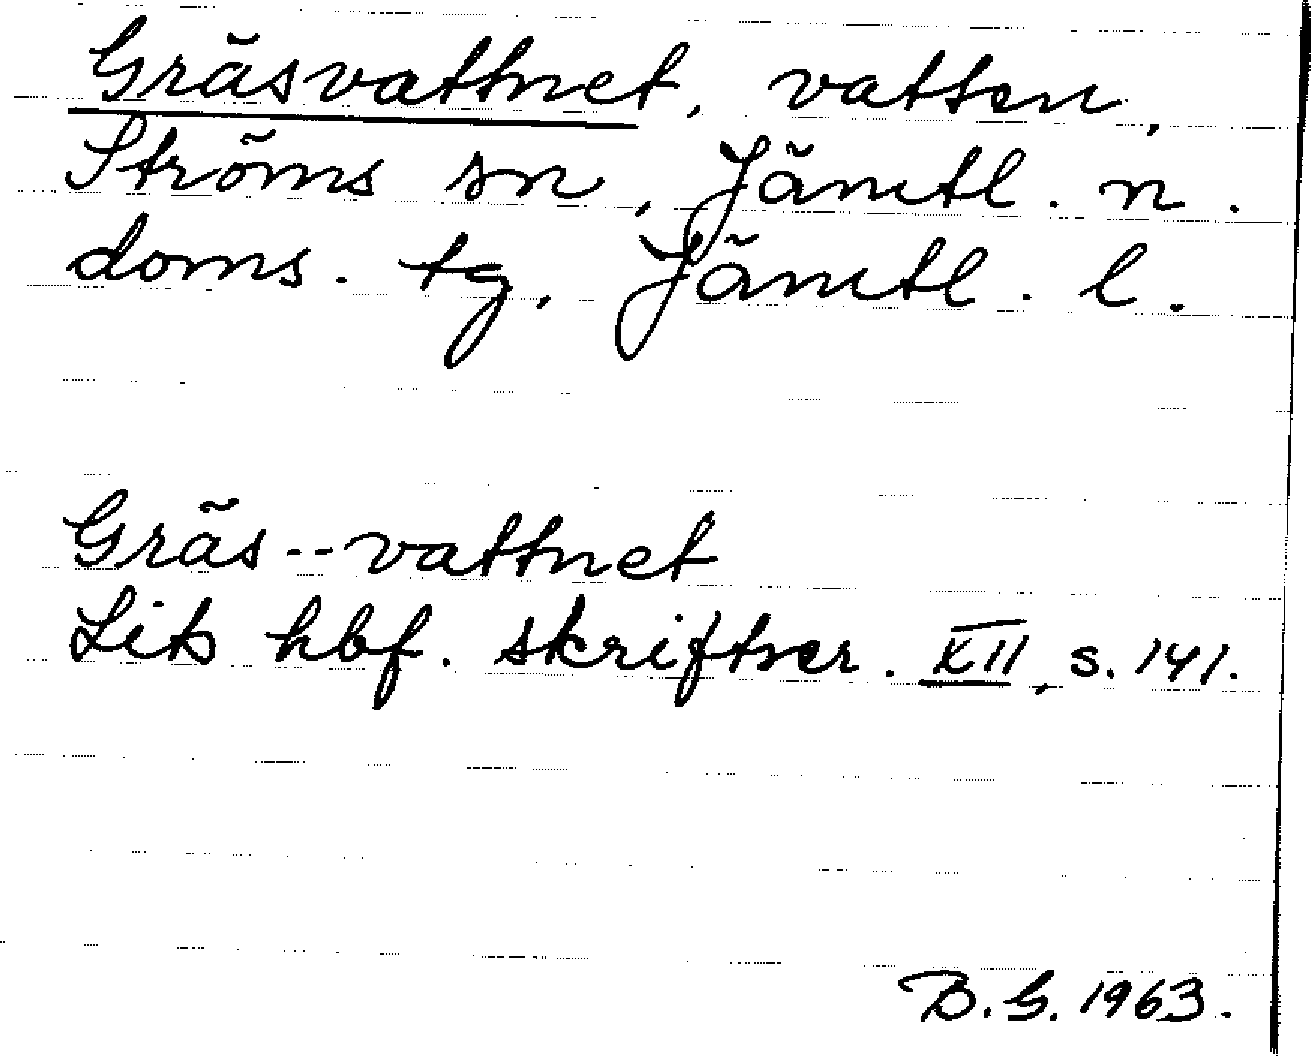 Gräsvattnet, vatten,
Ströms sn, Jämtl. n.
doms. tg, Jämtl. l.
Gräs--vattnet
Lits hbf. skriftser. XII, s. 141.
B.G. 1963.